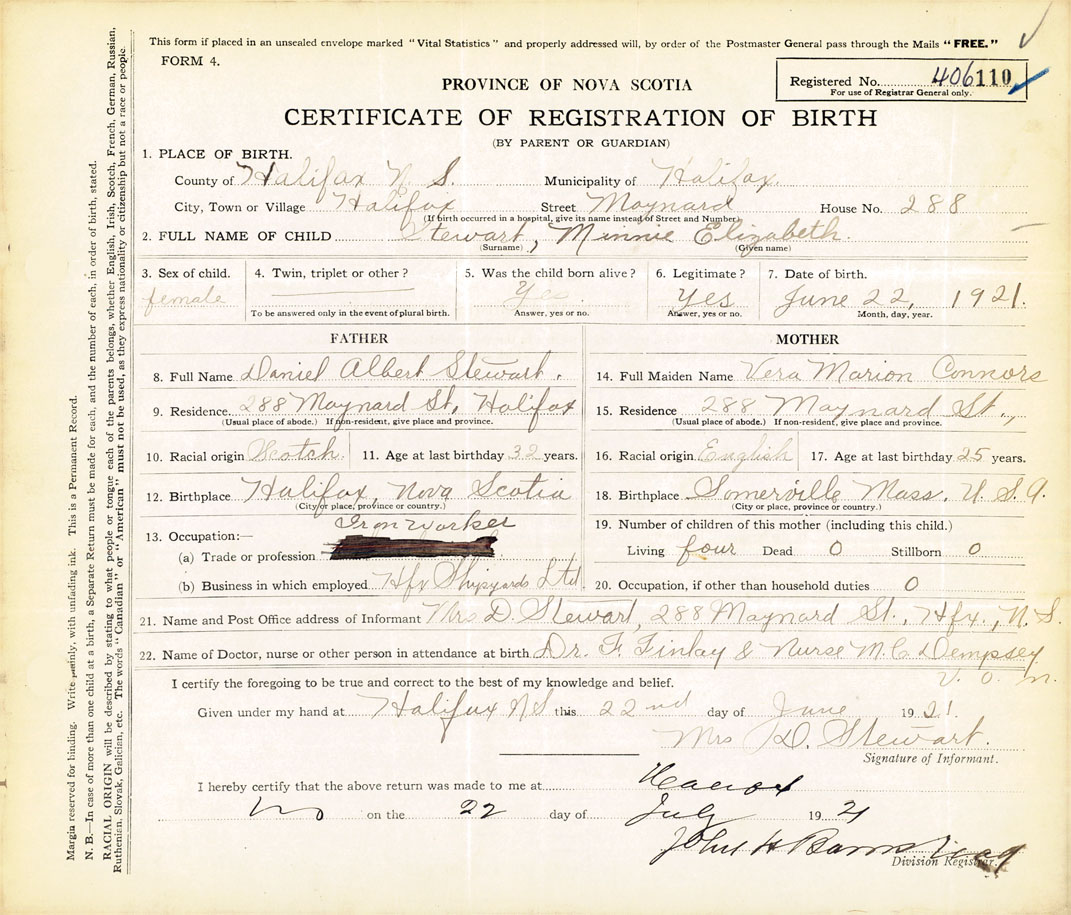 This form if placed in an unsealed envelope marked "Vital Statistics" and properly addressed will, by order of the Postmaster General pass through the Mails "FREE."
FORM 4.
Registered No. 406110
For use of Registrar General only.
PROVINCE OF NOVA SCOTIA
CERTIFICATE OF REGISTRATION OF BIRTH
(BY PARENT OR GUARDIAN)
1. PLACE OF BIRTH.
County of Halifax N. S. Municipality of Halifax.
City, Town or Village Halifax Street Maynard House No. 288
(If birth occurred in a hospital, give its name instead of Street and Number)
2. FULL NAME OF CHILD Stewart, Minnie Elizabeth.
(Surname) (Given name)
3. Sex of child. 4. Twin, triplet or other? 5. Was the child born alive? 6. Legitimate? 7. Date of birth.
female Yes. Yes June 22, 1921.
To be answered only in the event of plural birth. Answer, yes or no. Answer, yes or no. Month, day, year.
FATHER
8. Full Name Daniel Albert Stewart.
9. Residence 288 Maynard St, Halifax
(Usual place of abode.) If non-resident, give place and province.
10. Racial origin Scotch. 11. Age at last birthday 32 years.
12. Birthplace Halifax, Nova Scotia
(City or place, province or country.)
Iron Worker
13. Occupation:—
(a) Trade or profession
(b) Business in which employed Hfx Shipyards Ltd.
MOTHER
14. Full Maiden Name Vera Marion Connors
15. Residence 288 Maynard St.,
(Usual place of abode.) If non-resident, give place and province.
16. Racial origin English 17. Age at last birthday 25 years.
18. Birthplace Somerville Mass. U. S. A.
(City or place, province or country.)
19. Number of children of this mother (including this child.)
Living four Dead 0 Stillborn 0
20. Occupation, if other than household duties 0
21. Name and Post Office address of Informant Mrs D. Stewart, 288 Maynard St., Hfx., N. S.
22. Name of Doctor, nurse or other person in attendance at birth Dr. F. Finlay & Nurse M. C. Dempsey
V. O. N.
I certify the foregoing to be true and correct to the best of my knowledge and belief.
Given under my hand at Halifax N S this 22nd day of June 1921.
Mrs D. Stewart.
Signature of Informant.
I hereby certify that the above return was made to me at
on the 22 day of July 1921
John H Barnstead
Division Registrar.
Margin reserved for binding. Write plainly, with unfading ink. This is a Permanent Record.
N. B.—In case of more than one child at a birth, a Separate Return must be made for each, and the number of each, in order of birth, stated.
RACIAL ORIGIN will be described by stating to what people or tongue each of the parents belongs, whether English, Irish, Scotch, French, German, Russian,
Ruthenian, Slovak, Galician, etc. The words "Canadian" or "American" must not be used, as they express nationality or citizenship but not a race or people.